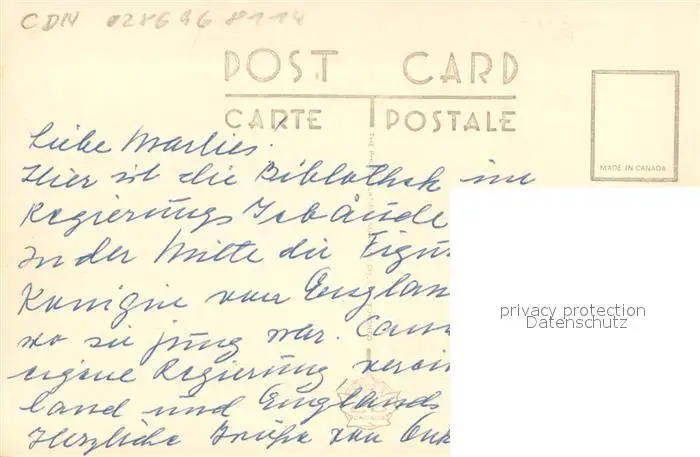 CDN 0286968114
POST CARD
CARTE POSTALE
MADE IN CANADA
Liebe Marlies!
Hier ist die Bibliothek im
Regierungs Gebäude
In der Mitte die Figur
Königin von England
wo sie jung war.
eigene Regierung,
land und Englands
Herzliche Grüße von
privacy protection
Datenschutz
CANADA